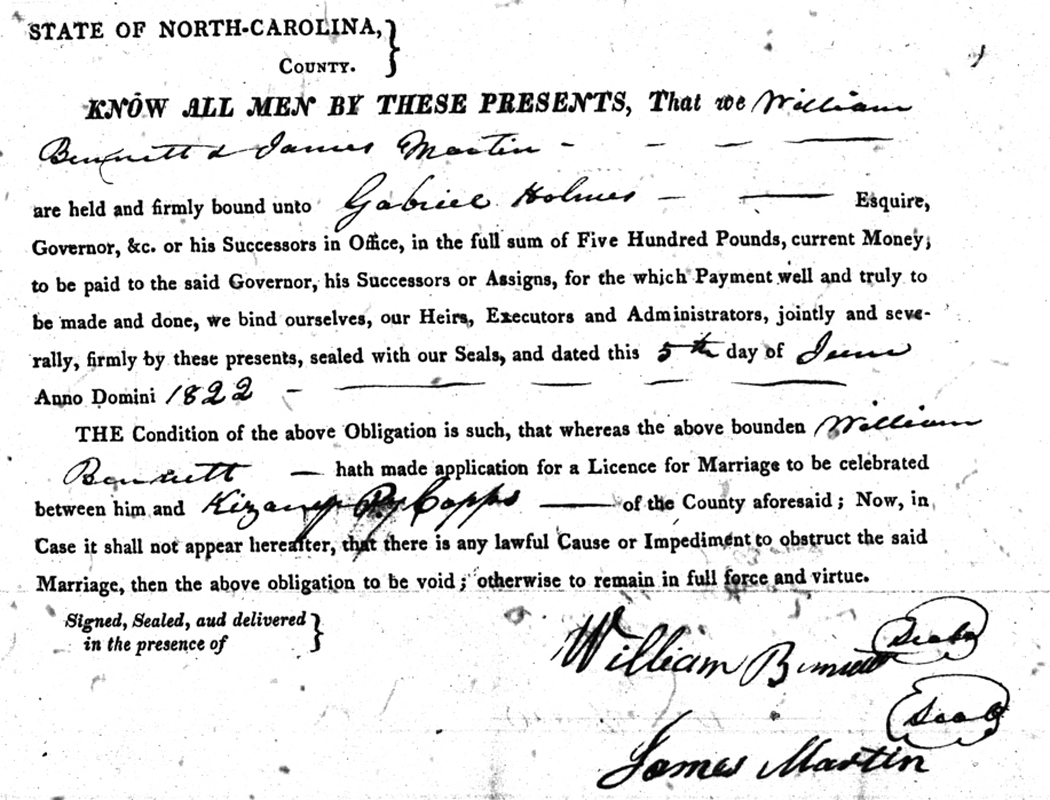 STATE OF NORTH-CAROLINA,
COUNTY.
KNOW ALL MEN BY THESE PRESENTS, That we William
Bennett & James Martin
are held and firmly bound unto Gabriel Holmes Esquire,
Governor, &c. or his Successors in Office, in the full sum of Five Hundred Pounds, current Money,
to be paid to the said Governor, his Successors or Assigns, for the which Payment well and truly to
be made and done, we bind ourselves, our Heirs, Executors and Administrators, jointly and seve-
rally, firmly by these presents, sealed with our Seals, and dated this 5th day of June
Anno Domini 1822
THE Condition of the above Obligation is such, that whereas the above bounden William
Bennett hath made application for a Licence for Marriage to be celebrated
between him and Capps of the County aforesaid; Now, in
Case it shall not appear hereafter, that there is any lawful Cause or Impediment to obstruct the said
Marriage, then the above obligation to be void; otherwise to remain in full force and virtue.
Signed, Sealed, aud delivered
in the presence of
William Bennett Seal
James Martin Seal